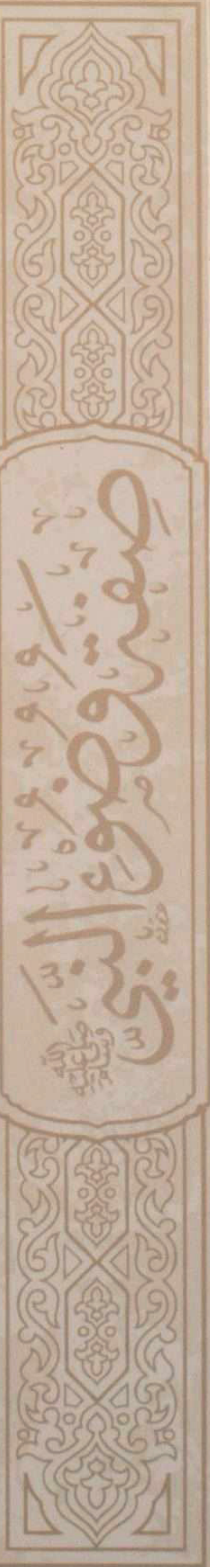 صِفَةُ وُضُوءِ النَّبِيِّ صلى الله عليه وسلم